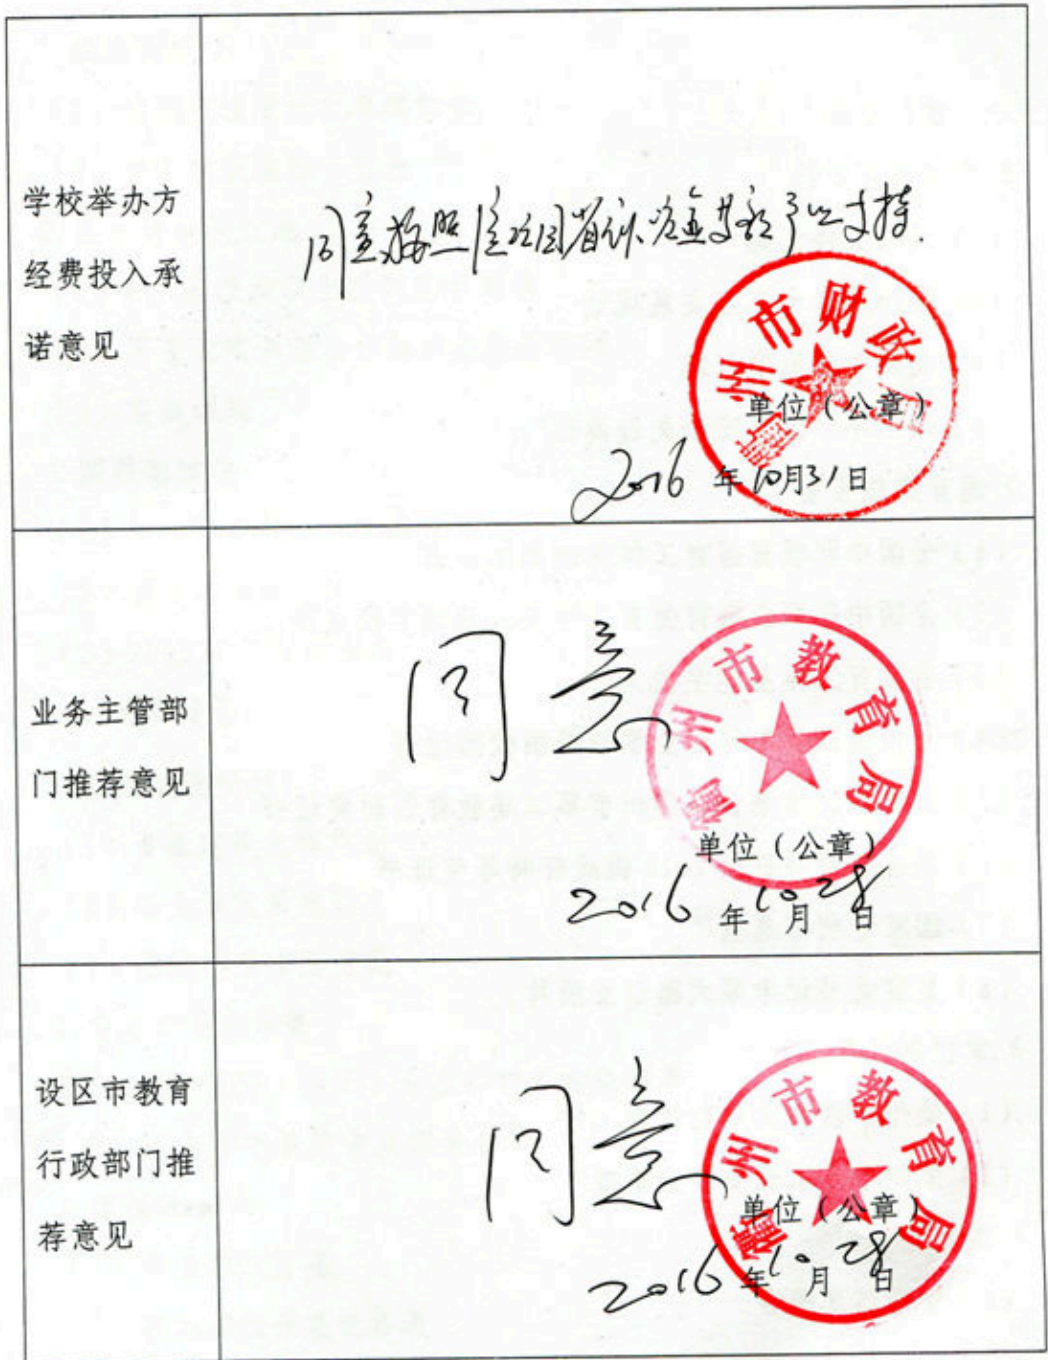 学校举办方
经费投入承
诺意见
同意按照
予以支持.
衢州市财政局
单位(公章)
2016年10月31日
业务主管部
门推荐意见
同意
衢州市教育局
单位(公章)
2016年10月28日
设区市教育
行政部门推
荐意见
同意
衢州市教育局
单位(公章)
2016年10月28日